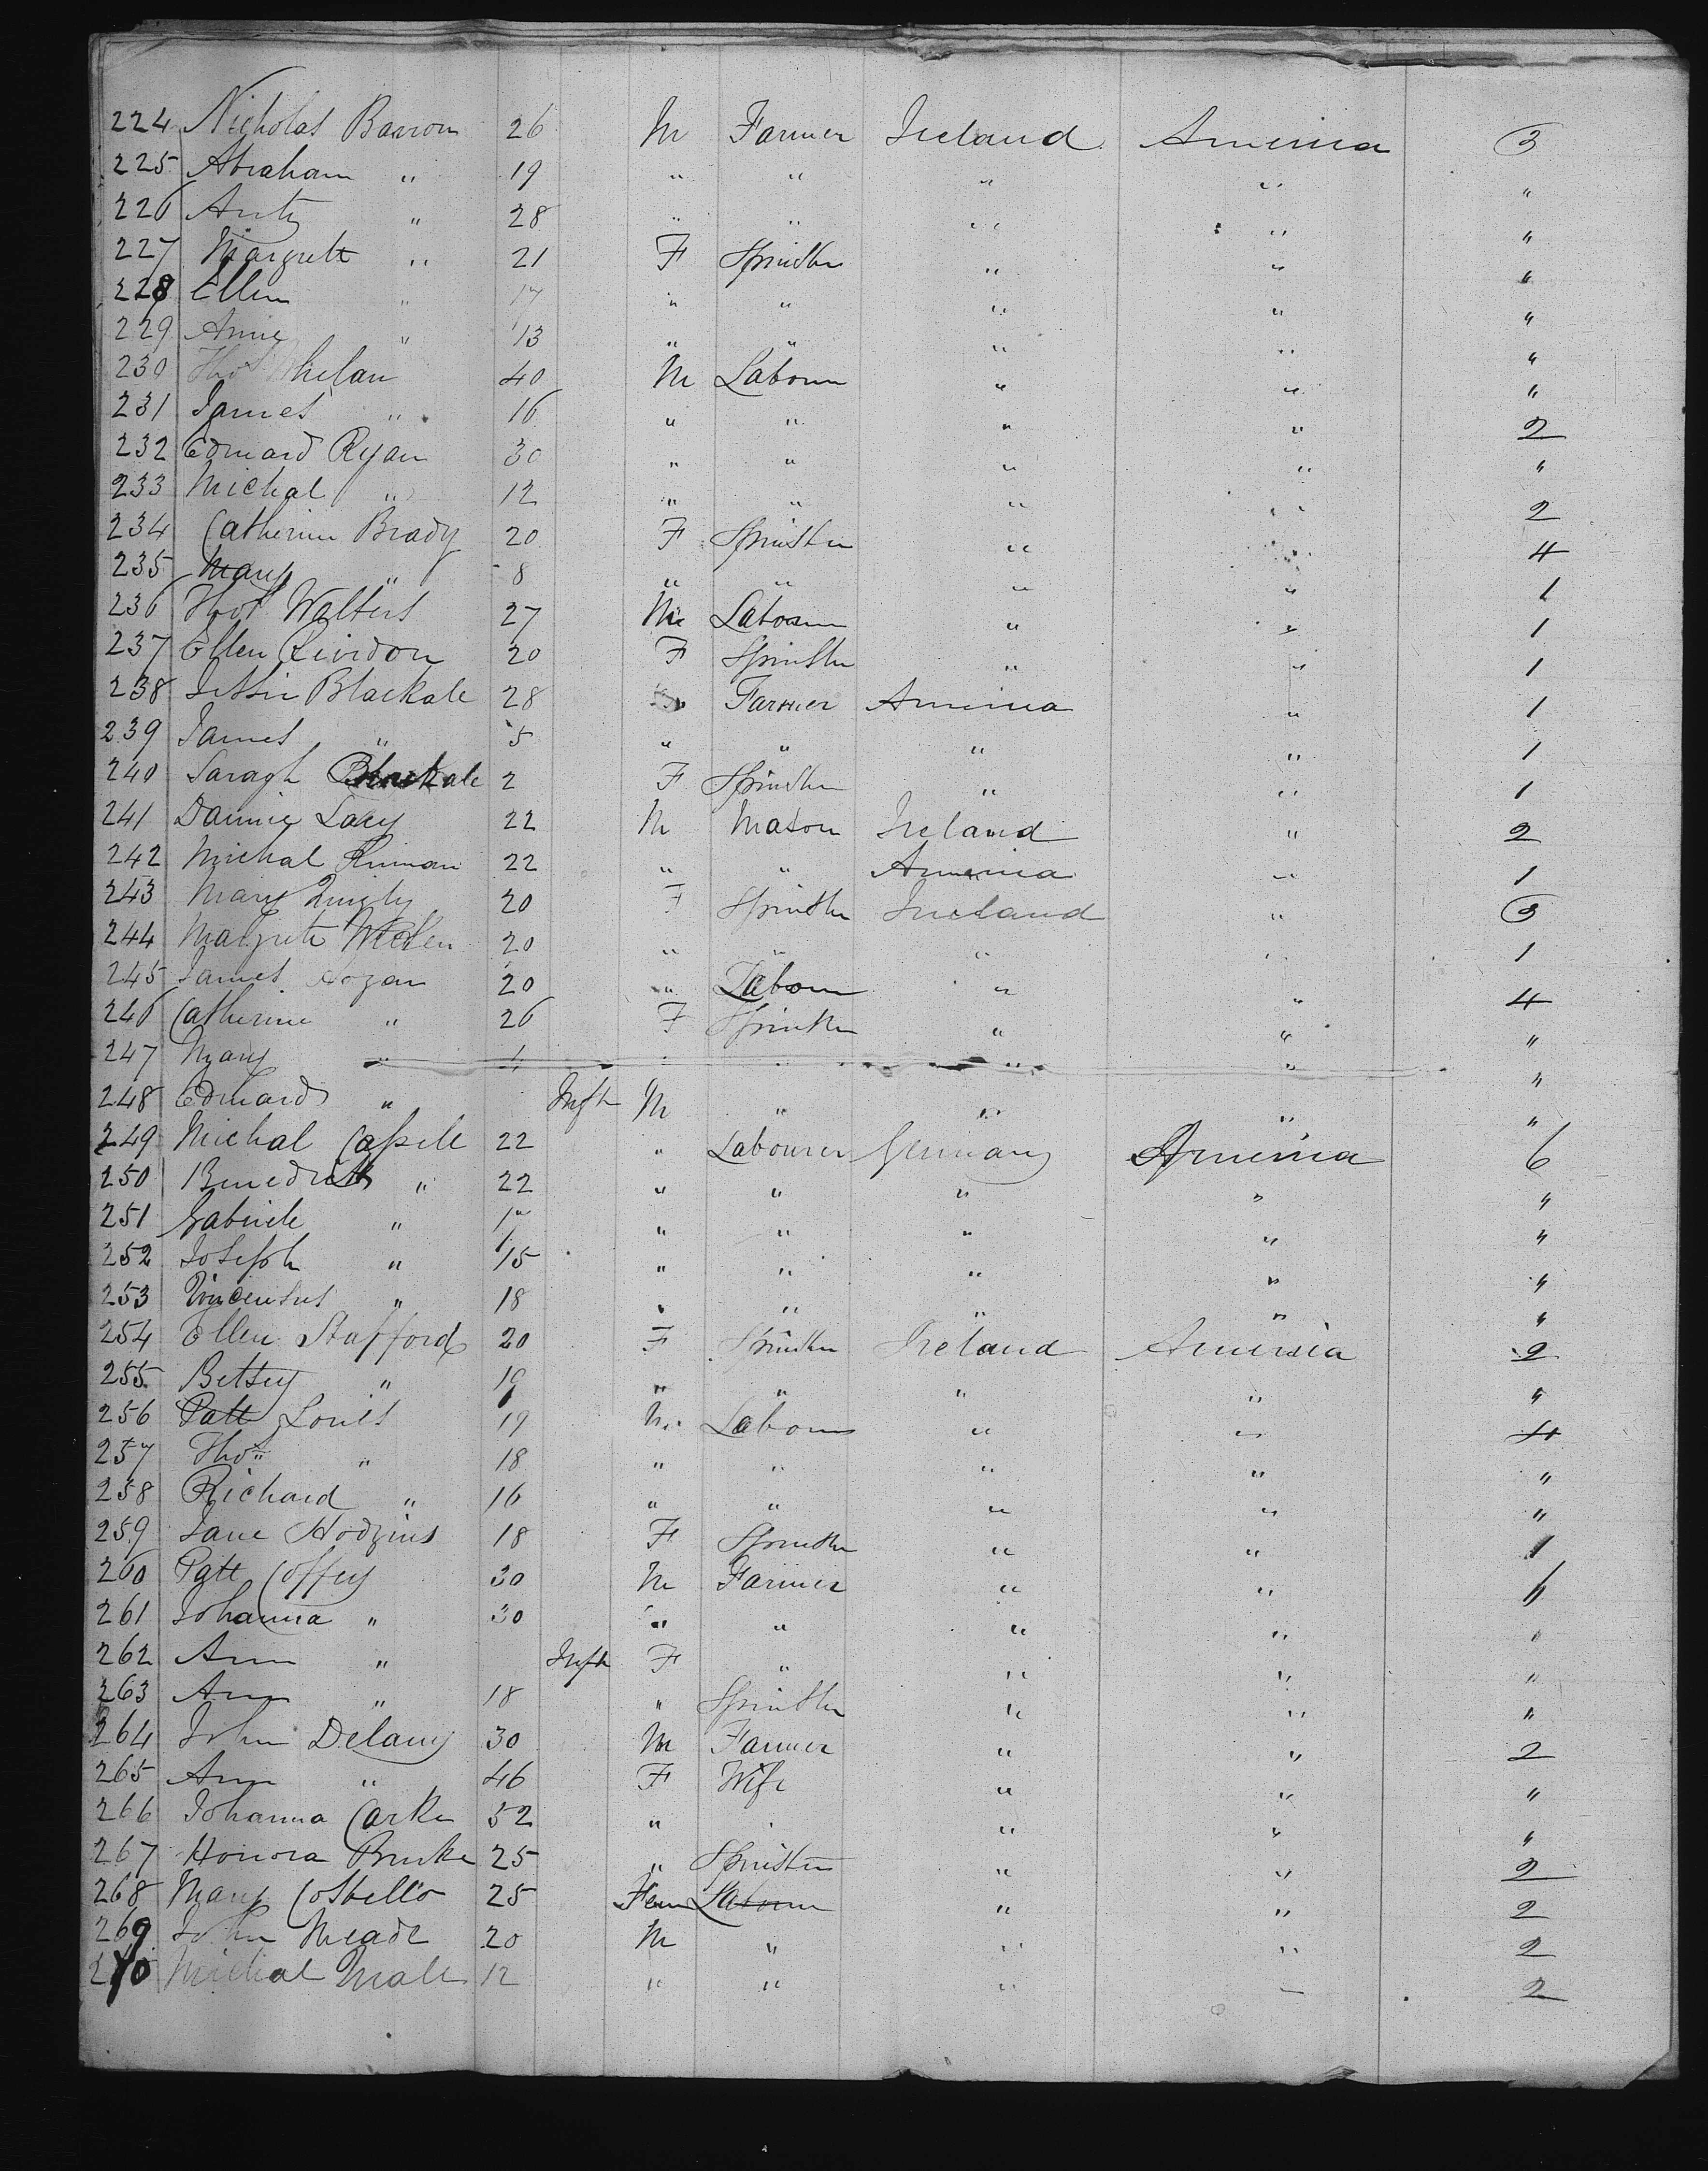 224 Nicholas Barron 26 M Farmer Ireland America 3
225 Abraham " 19 " " " " "
226 Anty " 28 " " " " "
227 Margrett " 21 F Spinster " " "
228 Ellen " 17 " " " " "
229 Annie " 13 " " " " "
230 Thos Whelan 40 M Labourer " " "
231 James " 16 " " " " 2
232 Edward Ryan 30 " " " " "
233 Michal " 12 " " " " 2
234 Catherine Brady 20 F Spinster " " 4
235 Mary " 8 " " " " 1
236 Thos Walters 27 M Labourer " " 1
237 Ellen Rividon 20 F Spinster " " 1
238 Blackale 28 Farmer America " 1
239 James " 5 " " " " 1
240 Saragh Blackale 2 F Spinster " " 1
241 Dannie Lacy 22 M Mason Ireland " 2
242 Michal 22 " " America " 1
243 Mary Quigly 20 F Spinster Ireland " 3
244 Margrete 20 " " " " 1
245 James Hogan 20 " Labour " " 4
246 Catherine " 26 F Spinster " " "
247 Mary " 4 " " " " "
248 Edward " Inft M " " " "
249 Michal 22 " Labourer Germany America 6
250 " 22 " " " " "
251 Gabriele " 17 " " " " "
252 Joseph " 15 " " " " "
253 Vincensus " 18 " " " " "
254 Ellen Stafford 20 F Spinster Ireland America 2
255 Betsey " 19 " " " " "
256 Patt Lones 19 M Labour " " 4
257 Thos " 18 " " " " "
258 Richard " 16 " " " " "
259 Jane Hodgins 18 F Spinster " " 1
260 Patt Coffey 30 M Farmer " "
261 Johanna " 30 " " " " "
262 Ann " Inft F " " " "
263 Ann " 18 " Spinster " " "
264 John Delany 30 M Farmer " " 2
265 Ann " 46 F Wife " " "
266 Johanna 52 " " " "
267 Honora Burke 25 " Spinster " " 2
268 Mary Costello 25 Fem Labour " " 2
269 John Meade 20 M " " " 2
270 Michal 12 " " " " 2